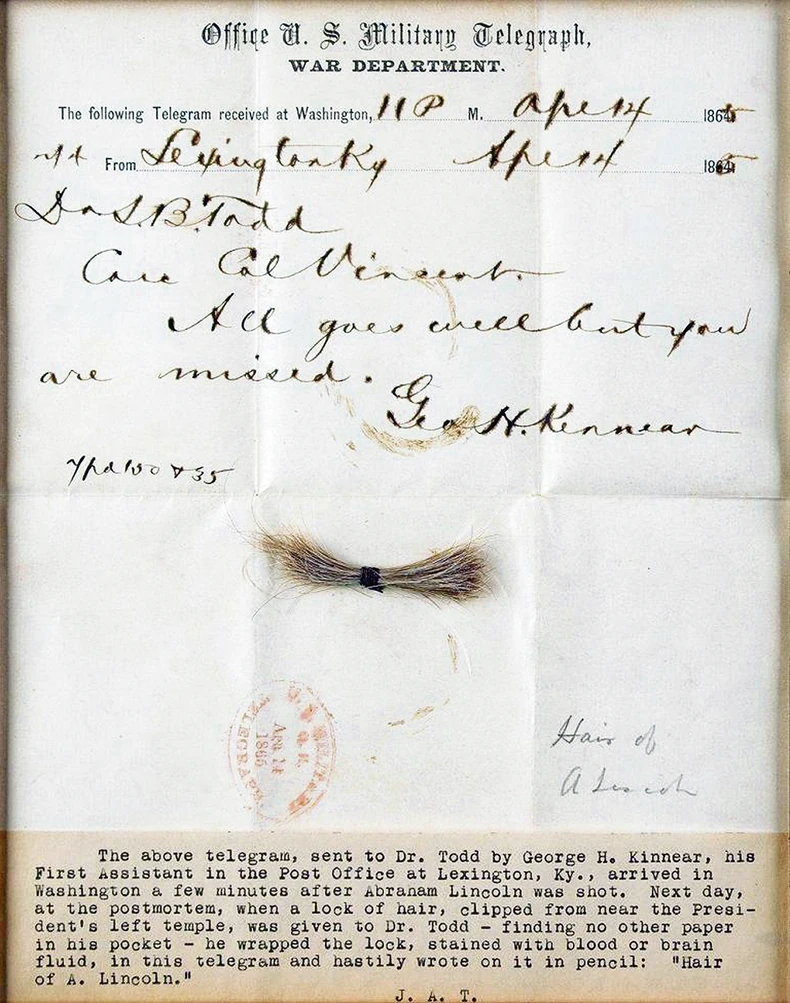 Office U. S. Military Telegraph,
WAR DEPARTMENT.
The following Telegram received at Washington, 11 P M. Apl 14 1865
From Lexington Ky Apl 14 1865
Dr L. B. Todd
Care Col Vincent.
All goes well but you
are missed.
Geo H. Kinnear
U.S. MILITARY
Apr 14
1865
TELEGRAPH
Hair of
A Lincoln
The above telegram, sent to Dr. Todd by George H. Kinnear, his
First Assistant in the Post Office at Lexington, Ky., arrived in
Washington a few minutes after Abraham Lincoln was shot. Next day,
at the postmortem, when a lock of hair, clipped from near the Presi-
dent's left temple, was given to Dr. Todd - finding no other paper
in his pocket - he wrapped the lock, stained with blood or brain
fluid, in this telegram and hastily wrote on it in pencil: "Hair
of A. Lincoln."
J. A. T.